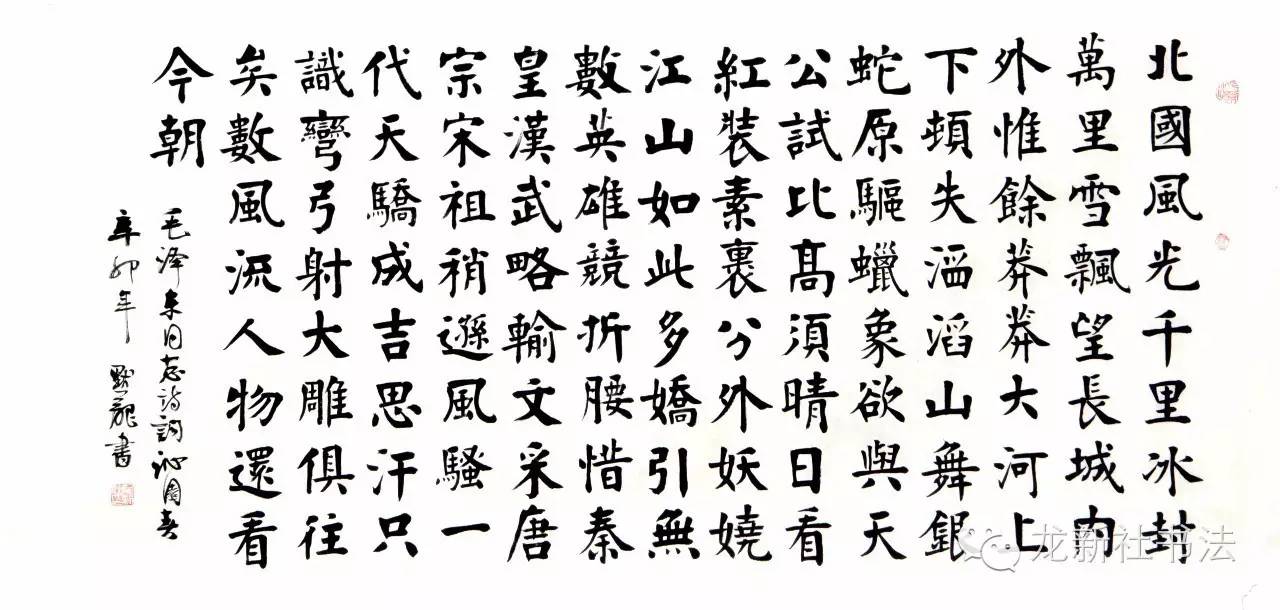 北國風光千里冰封
萬里雪飄望長城内
外惟餘莽莽大河上
下頓失滔滔山舞銀
蛇原驅蠟象欲與天
公試比髙須晴日看
紅裝素裹分外妖嬈
江山如此多嬌引無
數英雄競折腰惜秦
皇漢武略輸文采唐
宗宋祖稍遜風騷一
代天驕成吉思汗只
識彎弓射大雕俱往
矣數風流人物還看
今朝
毛泽东同志诗詞沁園春
辛卯年 默龍書
龙新社书法